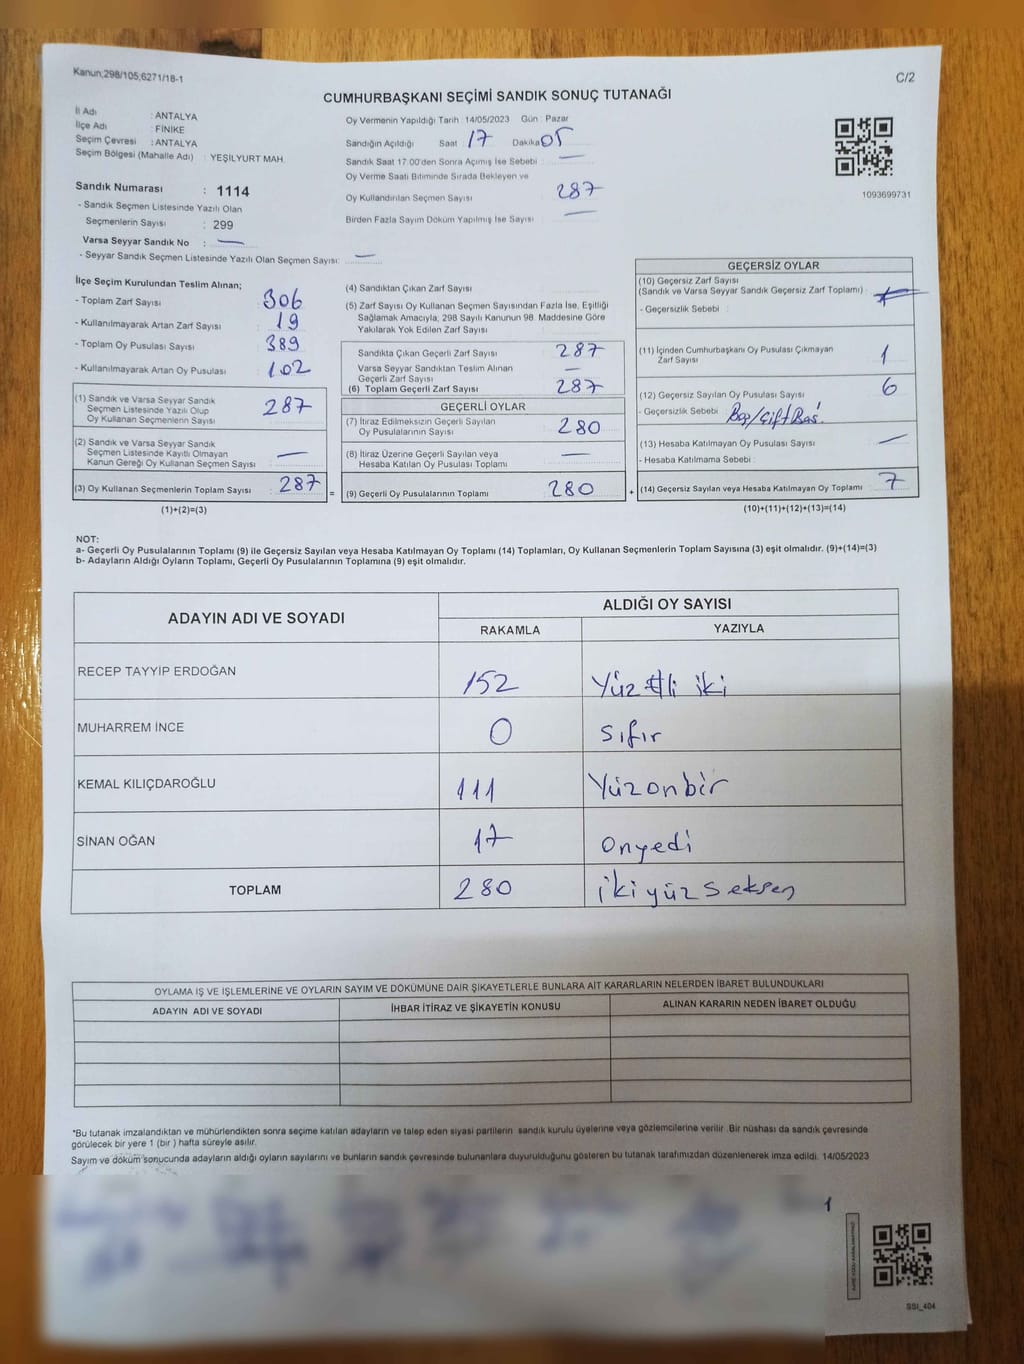 Kanun;298/105;6271/18-1
C/2
CUMHURBAŞKANI SEÇİMİ SANDIK SONUÇ TUTANAĞI
İl Adı : ANTALYA
İlçe Adı : FİNİKE
Seçim Çevresi : ANTALYA
Seçim Bölgesi (Mahalle Adı) : YEŞİLYURT MAH.
Sandık Numarası : 1114
- Sandık Seçmen Listesinde Yazılı Olan
Seçmenlerin Sayısı : 299
Varsa Seyyar Sandık No : —
- Seyyar Sandık Seçmen Listesinde Yazılı Olan Seçmen Sayısı: —
Oy Vermenin Yapıldığı Tarih : 14/05/2023 Gün : Pazar
Sandığın Açıldığı Saat : 17 Dakika 05
Sandık Saat 17:00'den Sonra Açımış İse Sebebi : —
Oy Verme Saati Bitiminde Sırada Bekleyen ve
Oy Kullandırılan Seçmen Sayısı 287
Birden Fazla Sayım Döküm Yapılmış İse Sayısı —
1093699731
İlçe Seçim Kurulundan Teslim Alınan;
- Toplam Zarf Sayısı 306
- Kullanılmayarak Artan Zarf Sayısı 19
- Toplam Oy Pusulası Sayısı 389
- Kullanılmayarak Artan Oy Pusulası 102
(1) Sandık ve Varsa Seyyar Sandık
Seçmen Listesinde Yazılı Olup
Oy Kullanan Seçmenlerin Sayısı 287
(2) Sandık ve Varsa Seyyar Sandık
Seçmen Listesinde Kayıtlı Olmayan
Kanun Gereği Oy Kullanan Seçmen Sayısı —
(3) Oy Kullanan Seçmenlerin Toplam Sayısı 287
(1)+(2)=(3)
=
(4) Sandıktan Çıkan Zarf Sayısı
(5) Zarf Sayısı Oy Kullanan Seçmen Sayısından Fazla İse, Eşitliği
Sağlamak Amacıyla, 298 Sayılı Kanunun 98. Maddesine Göre
Yakılarak Yok Edilen Zarf Sayısı
Sandıkta Çıkan Geçerli Zarf Sayısı 287
Varsa Seyyar Sandıktan Teslim Alınan
Geçerli Zarf Sayısı —
(6) Toplam Geçerli Zarf Sayısı 287
GEÇERLİ OYLAR
(7) İtiraz Edilmeksizin Geçerli Sayılan
Oy Pusulalarının Sayısı 280
(8) İtiraz Üzerine Geçerli Sayılan veya
Hesaba Katılan Oy Pusulası Toplamı —
(9) Geçerli Oy Pusulalarının Toplamı 280
+
GEÇERSİZ OYLAR
(10) Geçersiz Zarf Sayısı
(Sandık ve Varsa Seyyar Sandık Geçersiz Zarf Toplamı) :
- Geçersizlik Sebebi :
(11) İçinden Cumhurbaşkanı Oy Pusulası Çıkmayan
Zarf Sayısı 1
(12) Geçersiz Sayılan Oy Pusulası Sayısı 6
- Geçersizlik Sebebi : Boş/Çift Bas.
(13) Hesaba Katılmayan Oy Pusulası Sayısı —
- Hesaba Katılmama Sebebi :
(14) Geçersiz Sayılan veya Hesaba Katılmayan Oy Toplamı 7
(10)+(11)+(12)+(13)=(14)
NOT:
a- Geçerli Oy Pusulalarının Toplamı (9) ile Geçersiz Sayılan veya Hesaba Katılmayan Oy Toplamı (14) Toplamları, Oy Kullanan Seçmenlerin Toplam Sayısına (3) eşit olmalıdır. (9)+(14)=(3)
b- Adayların Aldığı Oyların Toplamı, Geçerli Oy Pusulalarının Toplamına (9) eşit olmalıdır.
ADAYIN ADI VE SOYADI
ALDIĞI OY SAYISI
RAKAMLA YAZIYLA
RECEP TAYYİP ERDOĞAN 152 Yüz Elli iki
MUHARREM İNCE 0 sıfır
KEMAL KILIÇDAROĞLU 111 Yüzonbir
SİNAN OĞAN 17 Onyedi
TOPLAM 280 ikiyüzseksen
OYLAMA İŞ VE İŞLEMLERİNE VE OYLARIN SAYIM VE DÖKÜMÜNE DAİR ŞİKAYETLERLE BUNLARA AİT KARARLARIN NELERDEN İBARET BULUNDUKLARI
ADAYIN ADI VE SOYADI İHBAR İTİRAZ VE ŞİKAYETİN KONUSU ALINAN KARARIN NEDEN İBARET OLDUĞU
*Bu tutanak imzalandıktan ve mühürlendikten sonra seçime katılan adayların ve talep eden siyasi partilerin sandık kurulu üyelerine veya gözlemcilerine verilir. Bir nüshası da sandık çevresinde
görülecek bir yere 1 (bir ) hafta süreyle asılır.
Sayım ve döküm sonucunda adayların aldığı oyların sayılarını ve bunların sandık çevresinde bulunanlara duyurulduğunu gösteren bu tutanak tarafımızdan düzenlenerek imza edildi. 14/05/2023
1
SSI_404